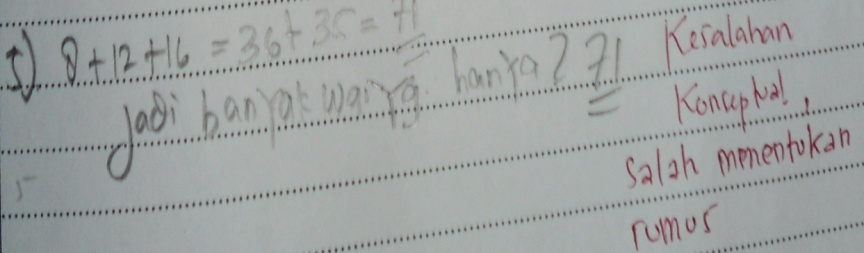 5) 8 + 12 + 16 = 36 + 35 = 71
Jadi banyak hanya 2 71
Kesalahan
Konseptual,
salah menentukan
rumus